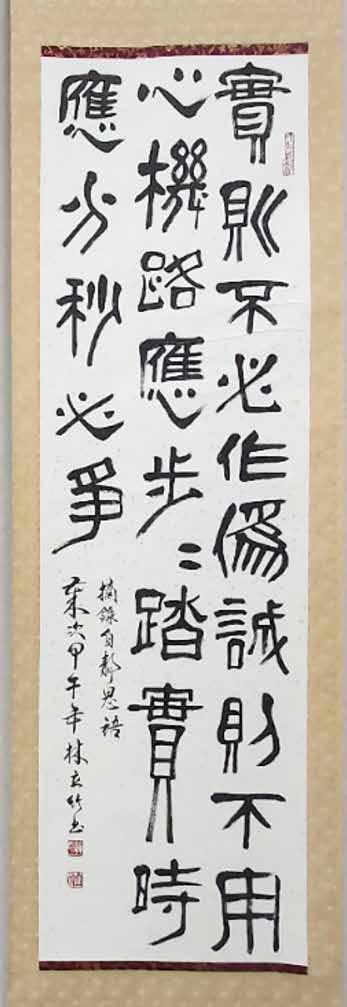 實則不必作為誠則不用
心機路應步々踏實時
應分秒必爭
摘錄自靜思語
歲次甲午年林立竹書